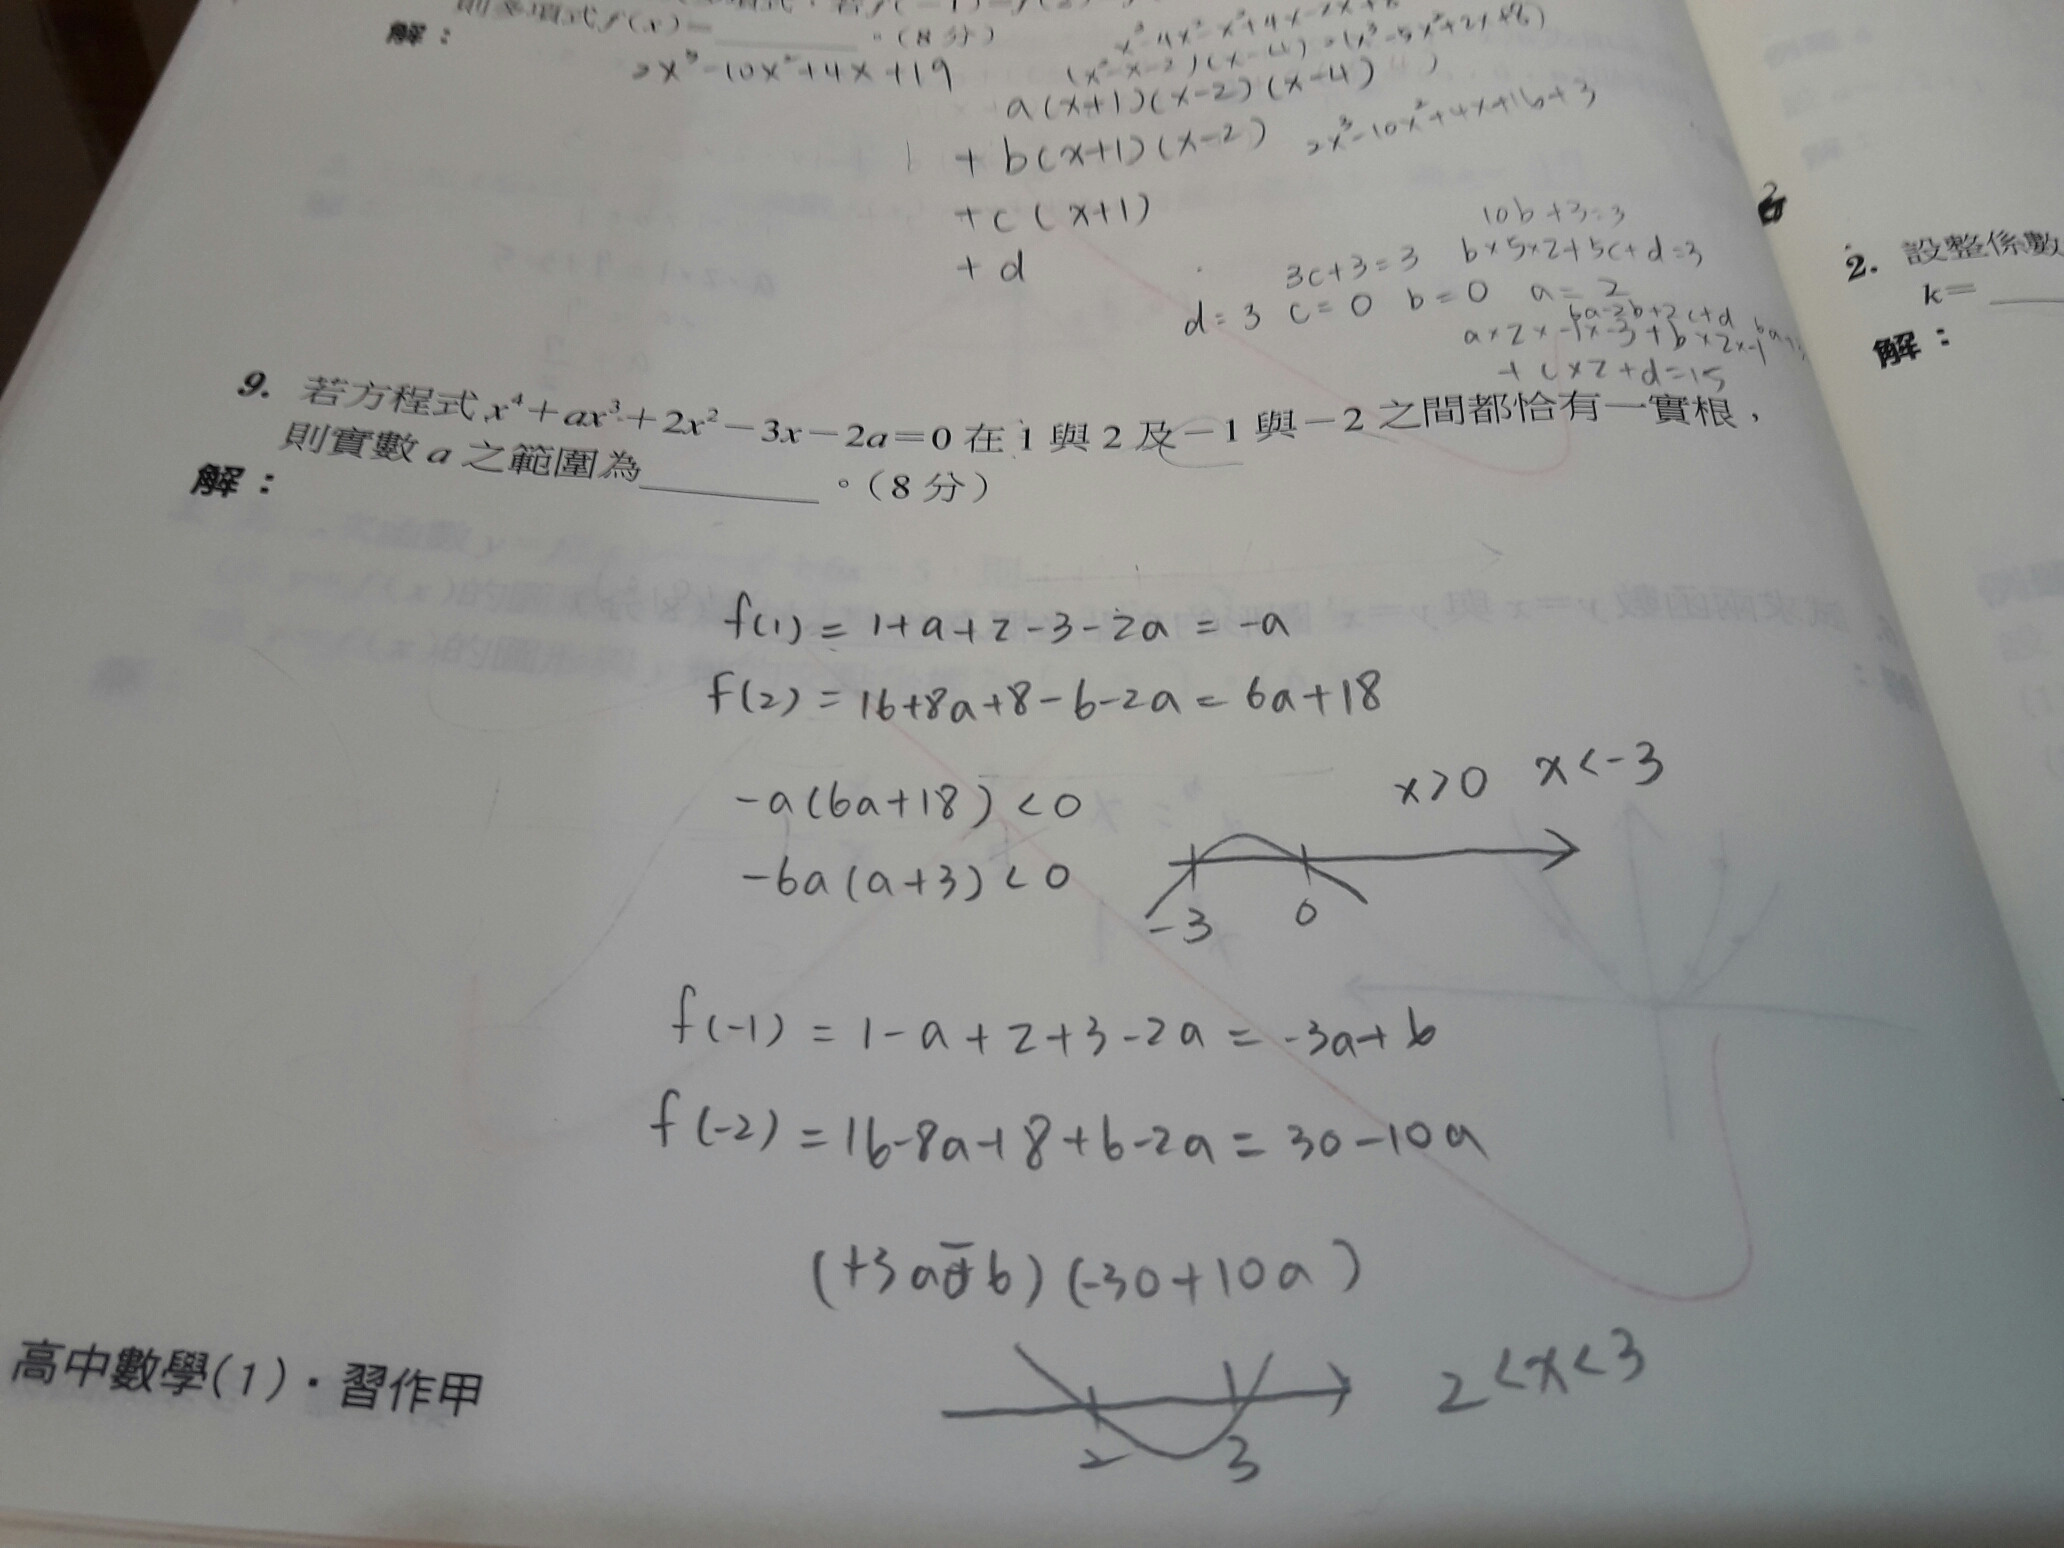 則多項式f(x)=________。(8分)
解：
2x³-10x²+4x+19
(x²-x-2)(x-4)
a(x+1)(x-2)(x-4)
2x³-10x²+4x+16+3
+ b(x+1)(x-2)
+ c(x+1)
+ d
10b+3=3
3c+3=3 b×5×2+5c+d=3
d=3 c=0 b=0 a=2
6a-2b+2c+d
a×2×-1×-3+b×2×-1
+c×2+d=15
9. 若方程式x⁴+ax³+2x²-3x-2a=0在1與2及-1與-2之間都恰有一實根，
則實數a之範圍為________。(8分)
解：
f(1)=1+a+2-3-2a=-a
f(2)=16+8a+8-6-2a=6a+18
-a(6a+18)<0
x>0 x<-3
-6a(a+3)<0
-3 0
f(-1)=1-a+2+3-2a=-3a+6
f(-2)=16-8a+8+6-2a=30-10a
(+3a-6)(-30+10a)
2 3
2<x<3
高中數學(1)·習作甲
2. 設整係數
k=
解：